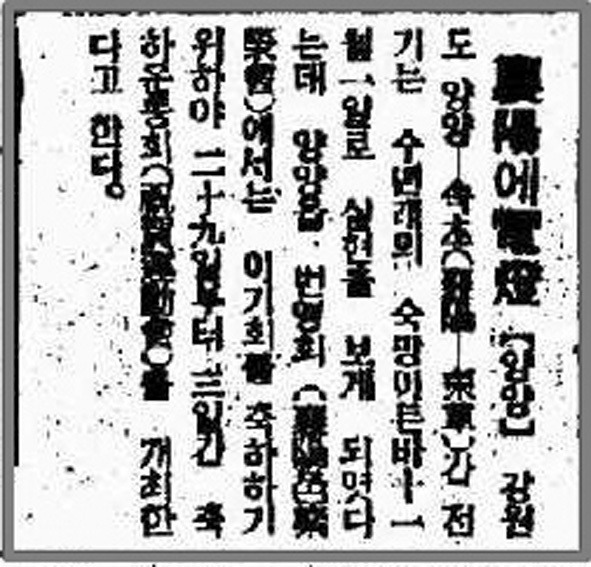 襄陽에電燈 【양양】 강원
도 양양—속초(襄陽—束草)간 전
기는 수년래의 숙망이든바十一
월一일로 실현을 보게 되엿다
는데 양양읍 번영회 (襄陽邑繁
榮會)에서는 이기회를 축하하기
위하야 二十九일부터 三일간 축
하운동회(祝賀運動會)를 개최한
다고 한다